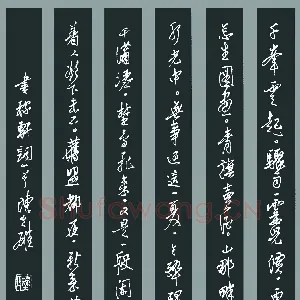 千峯雲起。驟雨一霎兒價。更
怎生圖畫。青旗賣酒。山那畔
水光中。無事過這一夏。午醉醒
千瀟灑。野鳥飛來。又是一般閒
着人欲下未下。舊盟都在。新來莫
書稼軒詞一首
Shufawang.CN